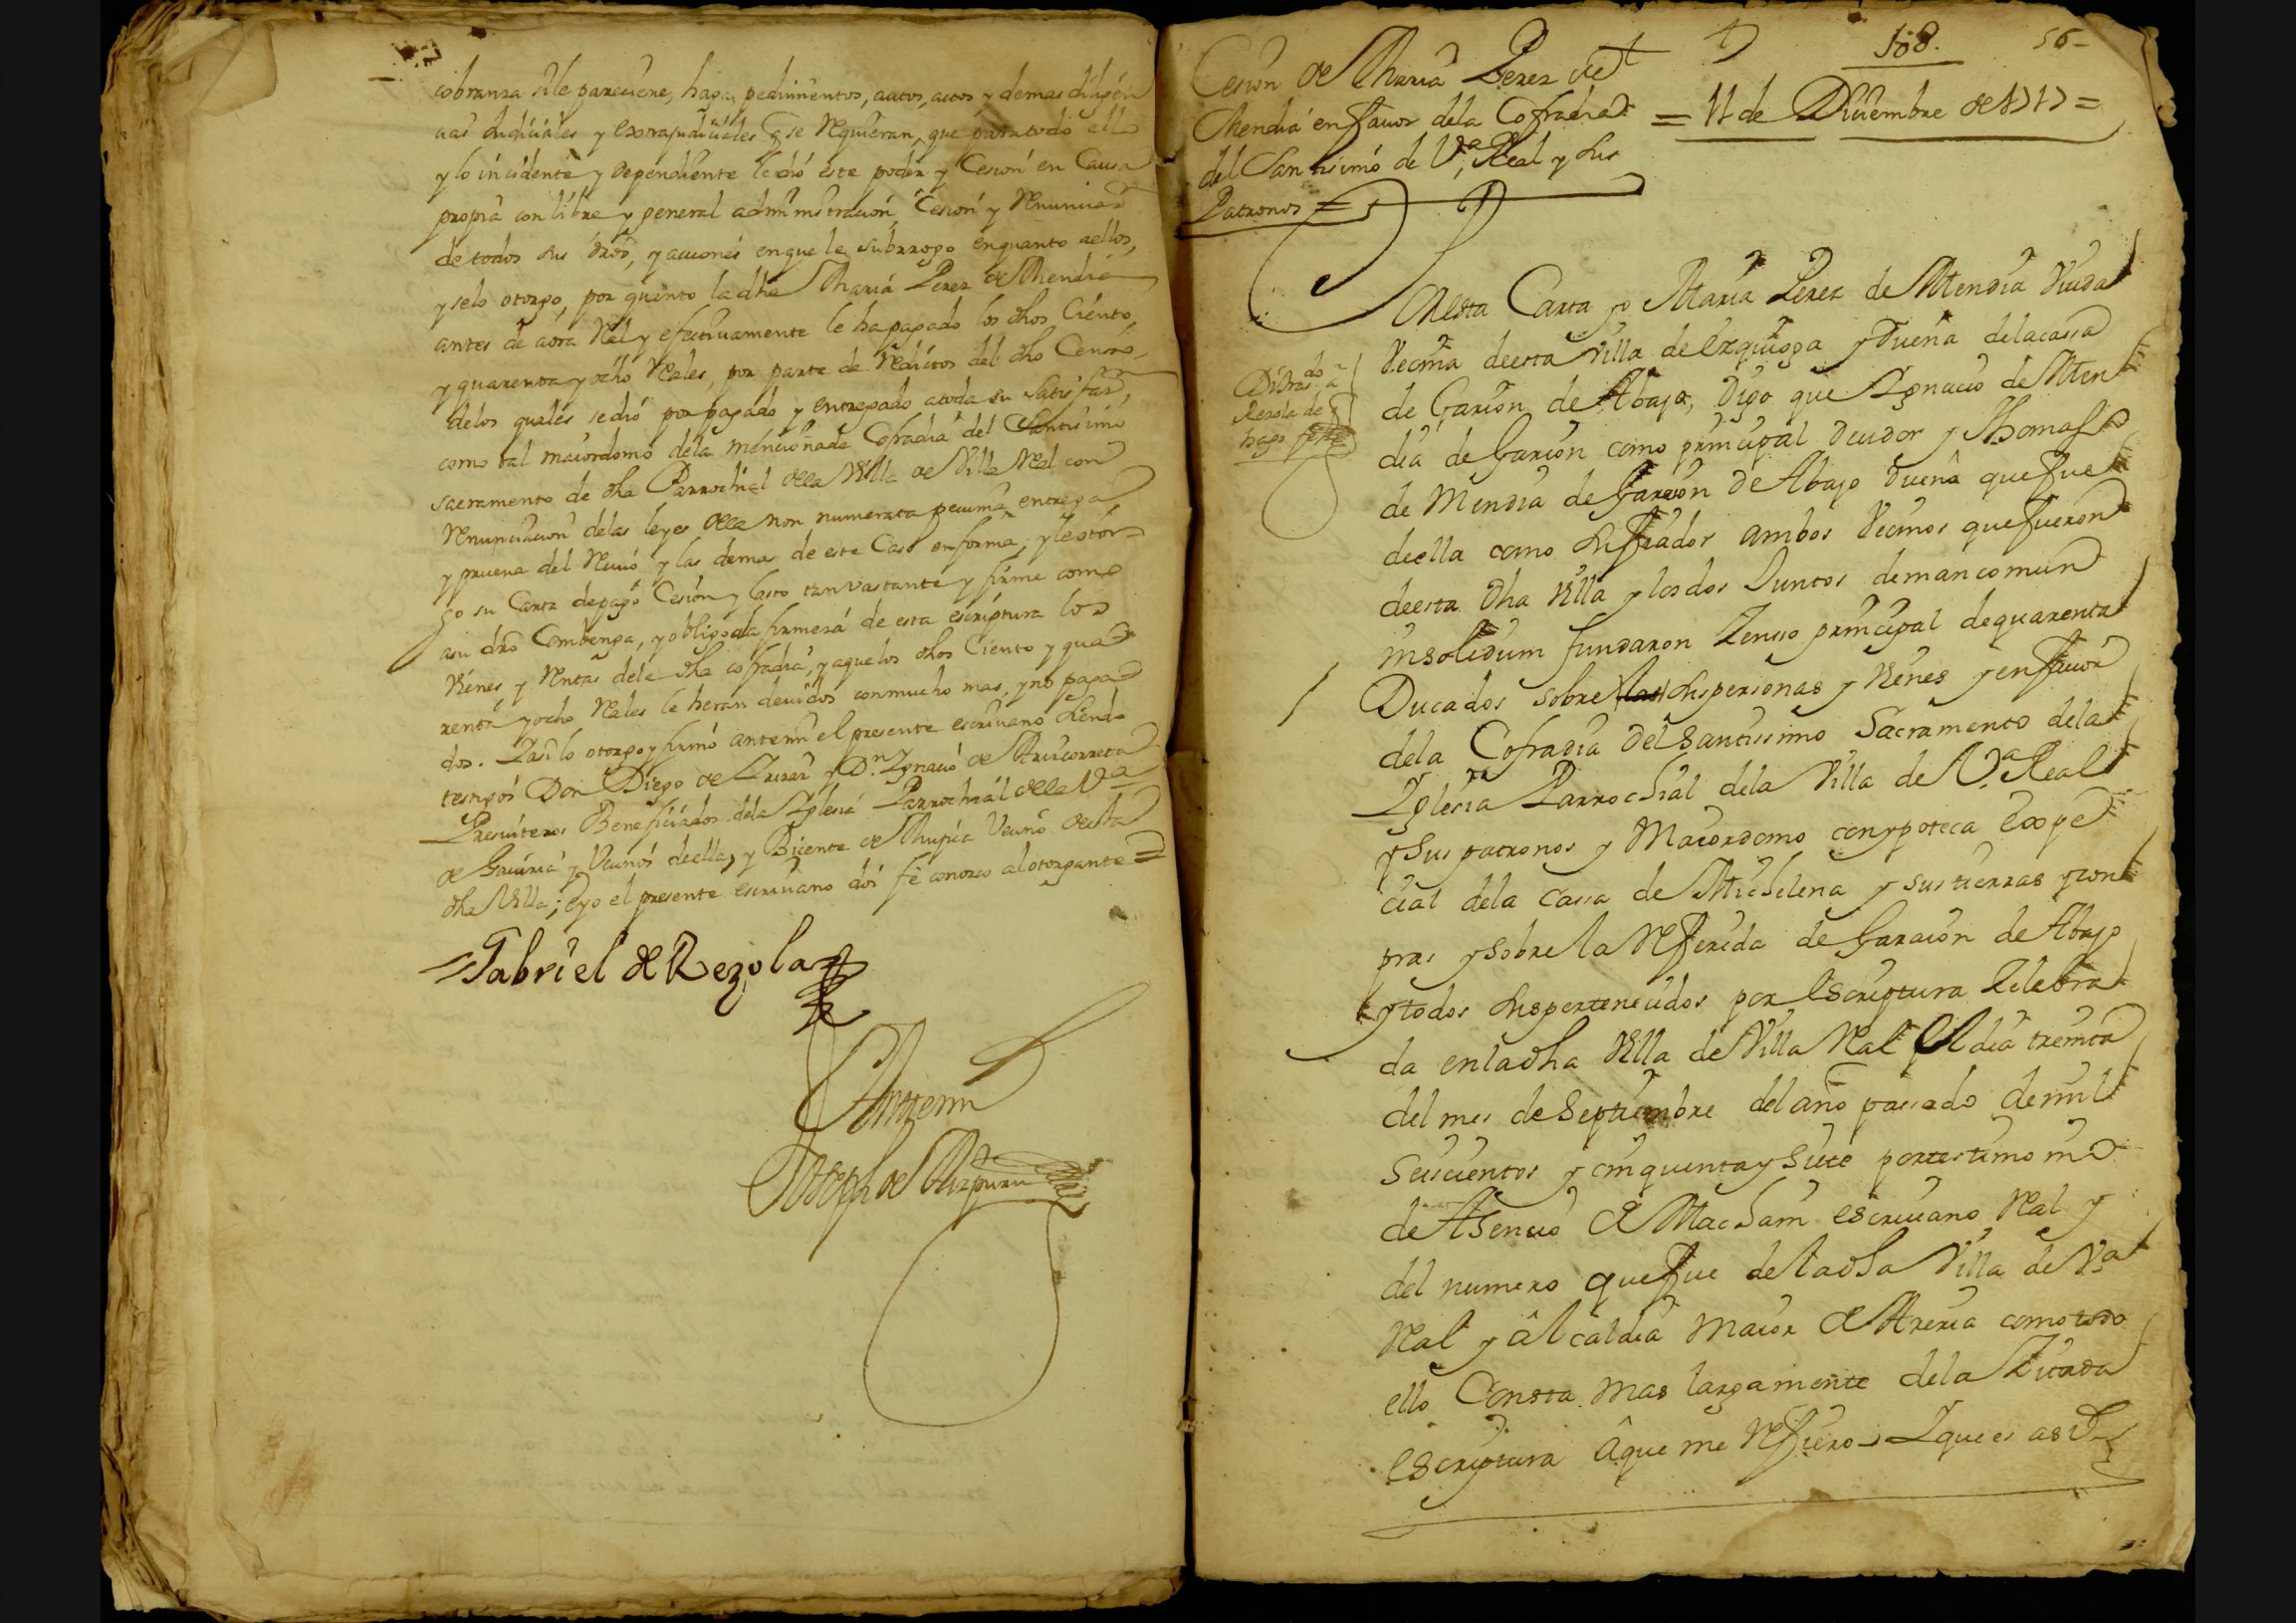 cobranza si le pareciere, haga pedimentos, autos, actos y demas diligen
cias Judiciales y extrajudiciales q se requieran, que para todo ello
y lo incidente y dependiente le dió este poder y Cesion en Causa
propria con libre y general administracion, Cesion y Renunciaz.
de todos sus dros, y acciones en que le subrrogo en quanto a ellos,
y selo otorgo, por quanto la dha Maria Perez de Mendia
antes de aora Real y efectivamente le ha pagado los dhos Ciento,
y quarenta y ocho Reales, por parte de Reditos del dho Censo,
delos quales se dió por pagado y entregado a toda su satisfaz.,
como tal maiordomo dela mencionada Cofradia del Santisimo
sacramento de dha Parrochial della Villa de Villa Real con
Renunciacion delas leyes della non numerata pecunia, entrega
y prueva del Recivo y las demas de este Caso en forma, y le otor-
go su Carta de pago Cesion y lasto tan vastante y firme como
a su dro Combenga, y obligo a la firmeza de esta escriptura los
Vienes y Rentas dela dha cofradia, y a que los dhos Ciento y qua
renta y ocho Reales le heran devidos con mucho mas, y no paga
dos. Y asi lo otorgo y firmó antemi el presente escrivano siendo
testigos Don Diego de y Dn. Ygnacio de Aruicorreta
Presviteros Beneficiados dela Yglesia Parrochial della Va
de Gaviria y Vecinos de ella, y Vicente de Vecino de esta
dha Villa; E yo el presente escrivano doi fe conozco al otorgante =
Gabriel de Rezola
Antemi
Joseph de Aizpuru
108. 56-
Cesion de Maria Perez de
Mendia en favor dela Cofradia
del Santisimo de Va. Real y sus
Patronos =
= 11 de Diciembre de 1717 =
Rezola de
hago fe
En esta Carta yo Maria Perez de Mendia Viuda
Vecina de esta Villa de Ezquioga y Dueña dela cassa
de Garzion de Abajo, Digo que Ygnacio de Men
dia de Garzion como principal deudor y Thomas
de Mendia de Garzion de Abajo Dueña que fue
de ella como su fiador ambos Vecinos que fueron
de esta dha Villa y los dos Juntos de mancomun
insolidum fundaron Zenso principal de quarenta
Ducados sobre sus personas y Vienes y en favor
dela Cofradia del Santissimo Sacramento dela
Yglesia Parrochial dela Villa de Va. Real
y sus patronos y Maiordomo con ypoteca Expe
cial dela Cassa de Michelena y sus tierras y con
pras y sobre la Referida de Garzion de Abajo
y todos sus pertenecidos por Escriptura Zelebra
da en la dha Villa de Villa Real el dia treinta
del mes de Septiembre del año passado de mil
Seiscientos y cinquenta y Siete por testimonio
de Asencio de Machain escrivano Real y
del numero que fue de la dha Villa de Va
Real y Alcaldia Maior de Areria como todo
ello Consta mas largamente dela Zitada
escriptura a que me Refiero = Y que es asi